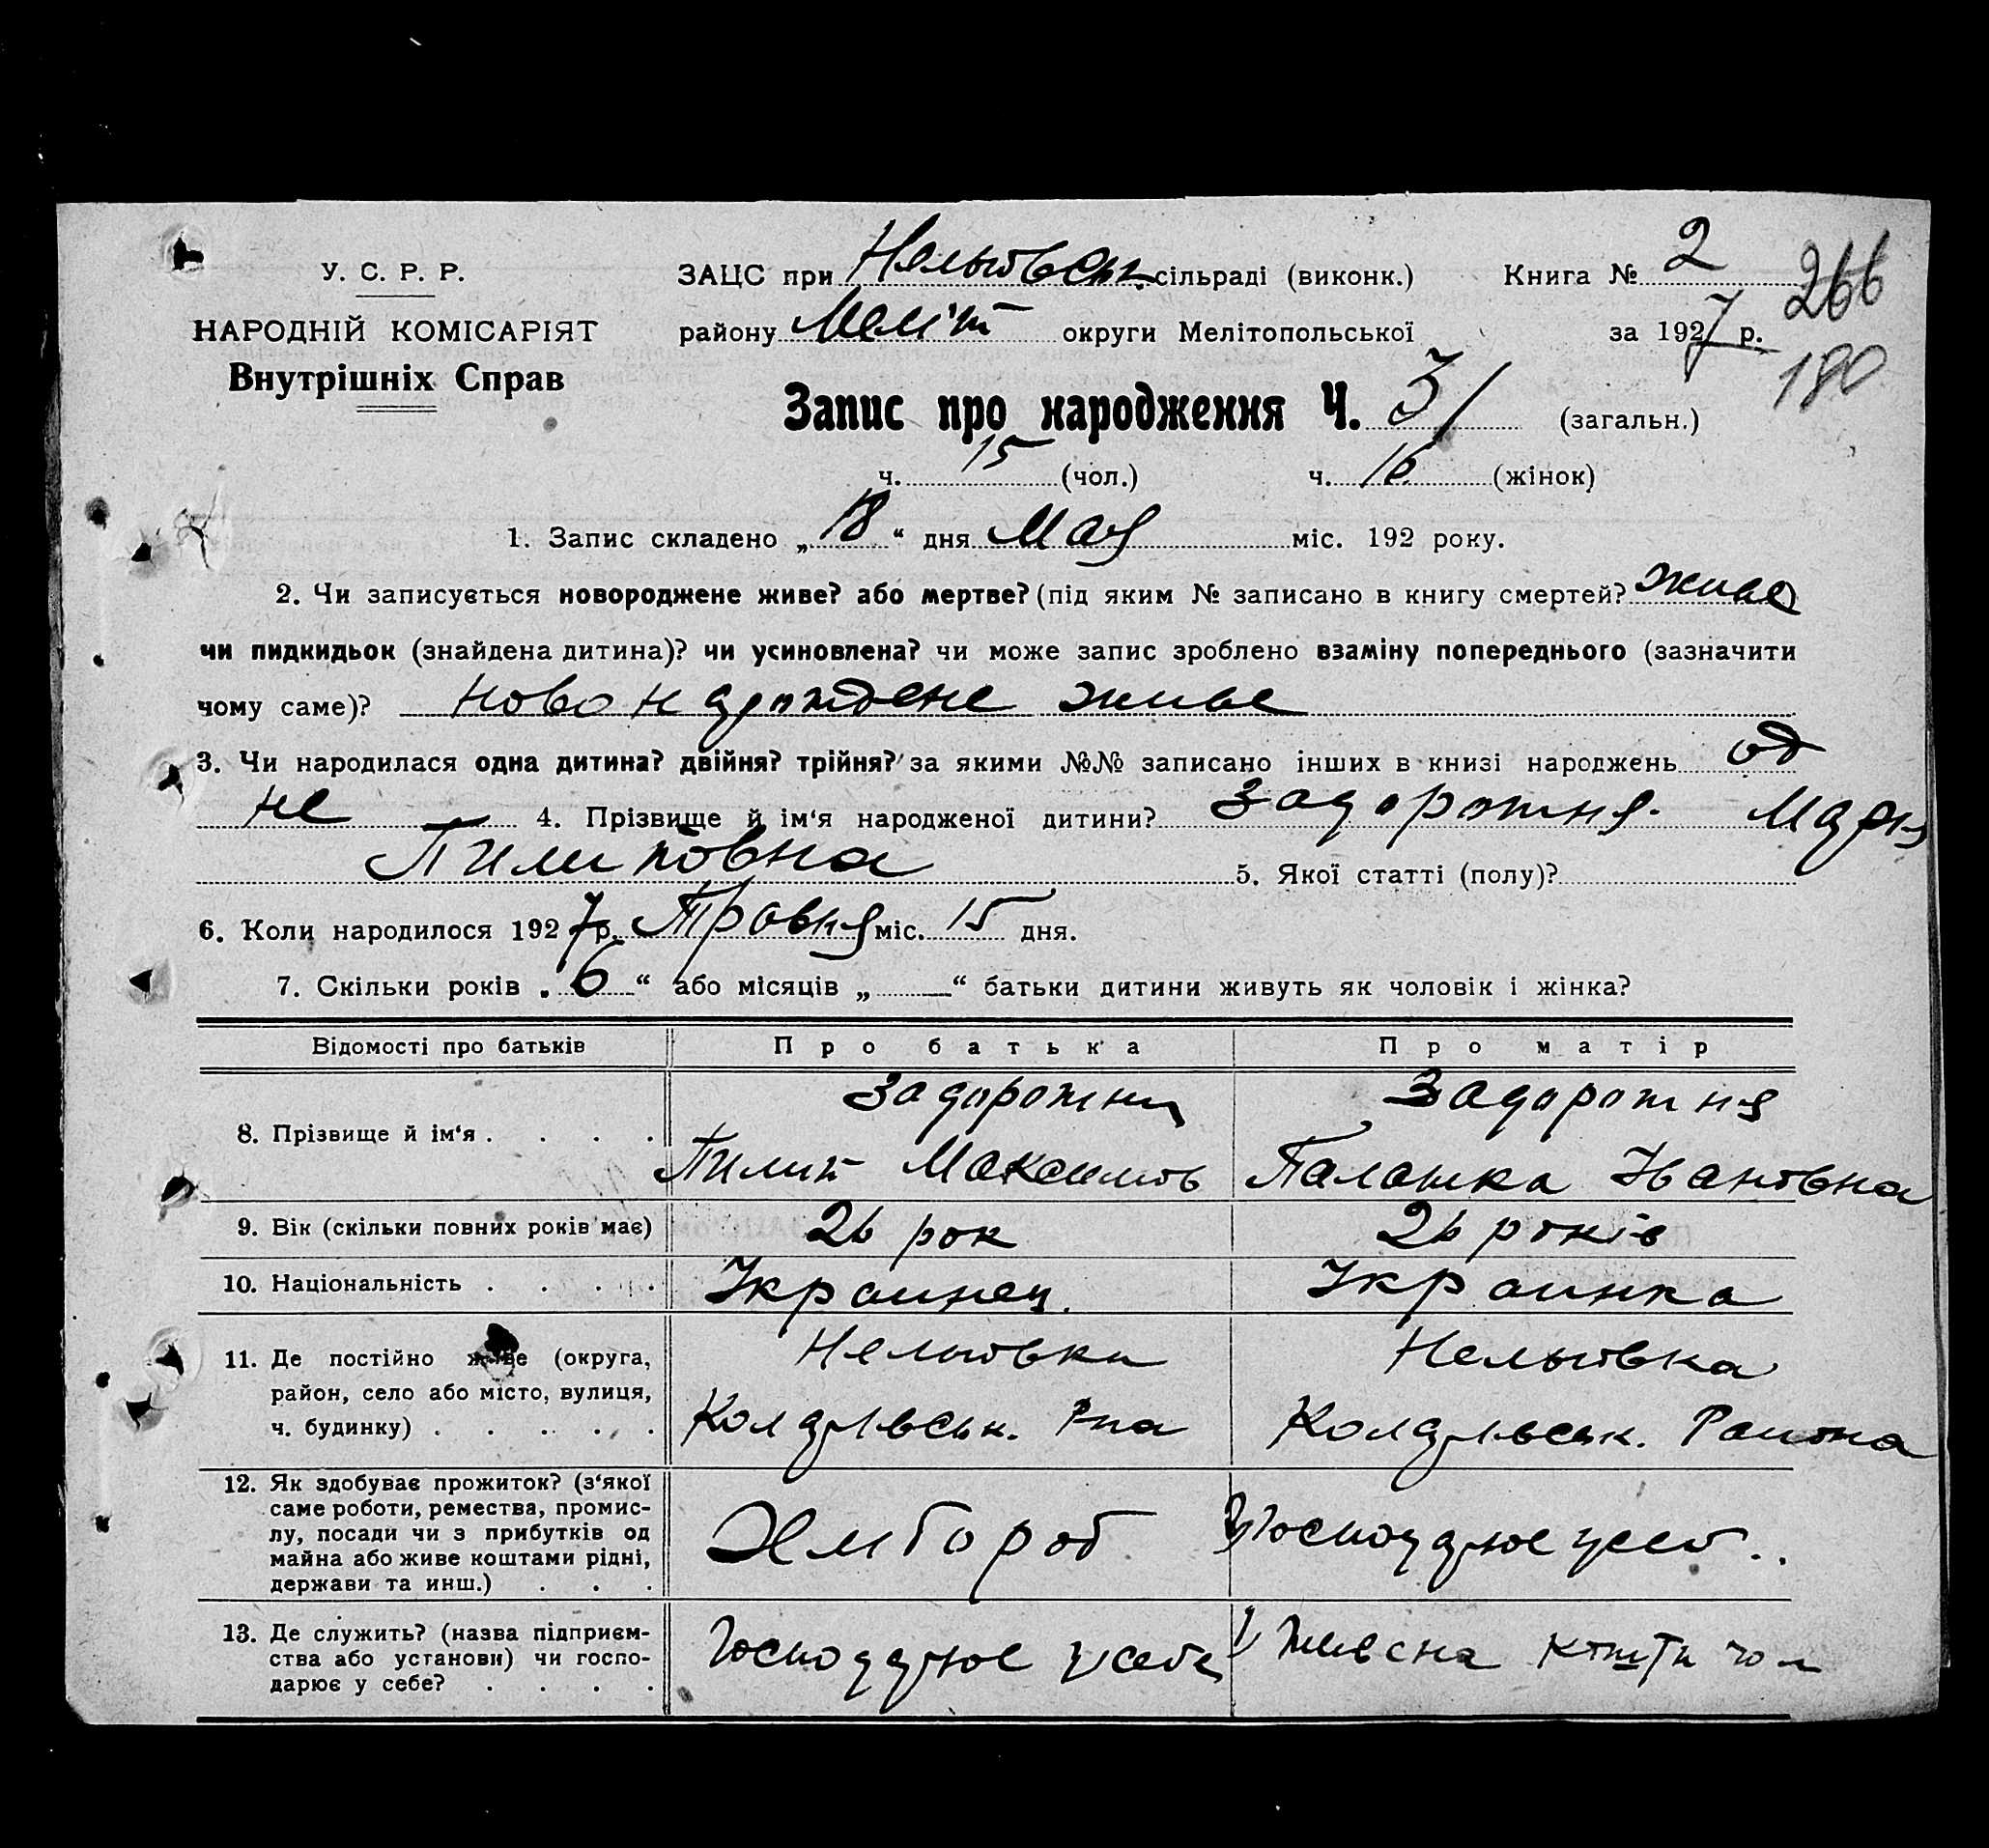 У. С. Р. Р.
НАРОДНІЙ КОМІСАРІЯТ
Внутрішніх Справ
ЗАЦС при Нельговськ. сільраді (виконк.) Книга № 2
266
району Меліт округи Мелітопольської за 1927 р.
180
Запис про народження Ч. 31 (загальн.)
ч. 15 (чол.) ч. 16 (жінок)
1. Запис складено „ 18 “ дня Мая міс. 192 року.
2. Чи записується новороджене живе? або мертве? (під яким № записано в книгу смертей? живе
чи пидкидьок (знайдена дитина)? чи усиновлена? чи може запис зроблено взаміну попереднього (зазначити
чому саме)? живе
3. Чи народилася одна дитина? двійня? трійня? за якими №№ записано інших в книзі народжень од
не 4. Прізвище й ім‘я народженої дитини? Задорожня Марія
Пилиповна 5. Якої статті (полу)?
6. Коли народилося 1927 р. Травня міс. 15 дня.
7. Скільки років „ 6 “ або місяців „ — “ батьки дитини живуть як чоловік і жінка?
Відомості про батьків Про батька Про матір
8. Прізвище й ім‘я . . . . Задорожни Задорожня
Пилип Максимов Палажка Івановна
9. Вік (скільки повних років має) 26 рок 26 років
10. Національність . . . . Украинец. Украинка
11. Де постійно живе (округа, Нельговка Нельговка
район, село або місто, вулиця,
ч. будинку) . . . . . Коларівськ. Рна Коларівськ. Района
12. Як здобуває прожиток? (з‘якої
саме роботи, ремества, промис-
лу, посади чи з прибутків од Хлибороб
майна або живе коштами рідні,
держави та инш.) . . .
13. Де служить? (назва підприєм-
ства або установи) чи госпо- Господарює у себе кошти чол
дарює у себе? . . . .